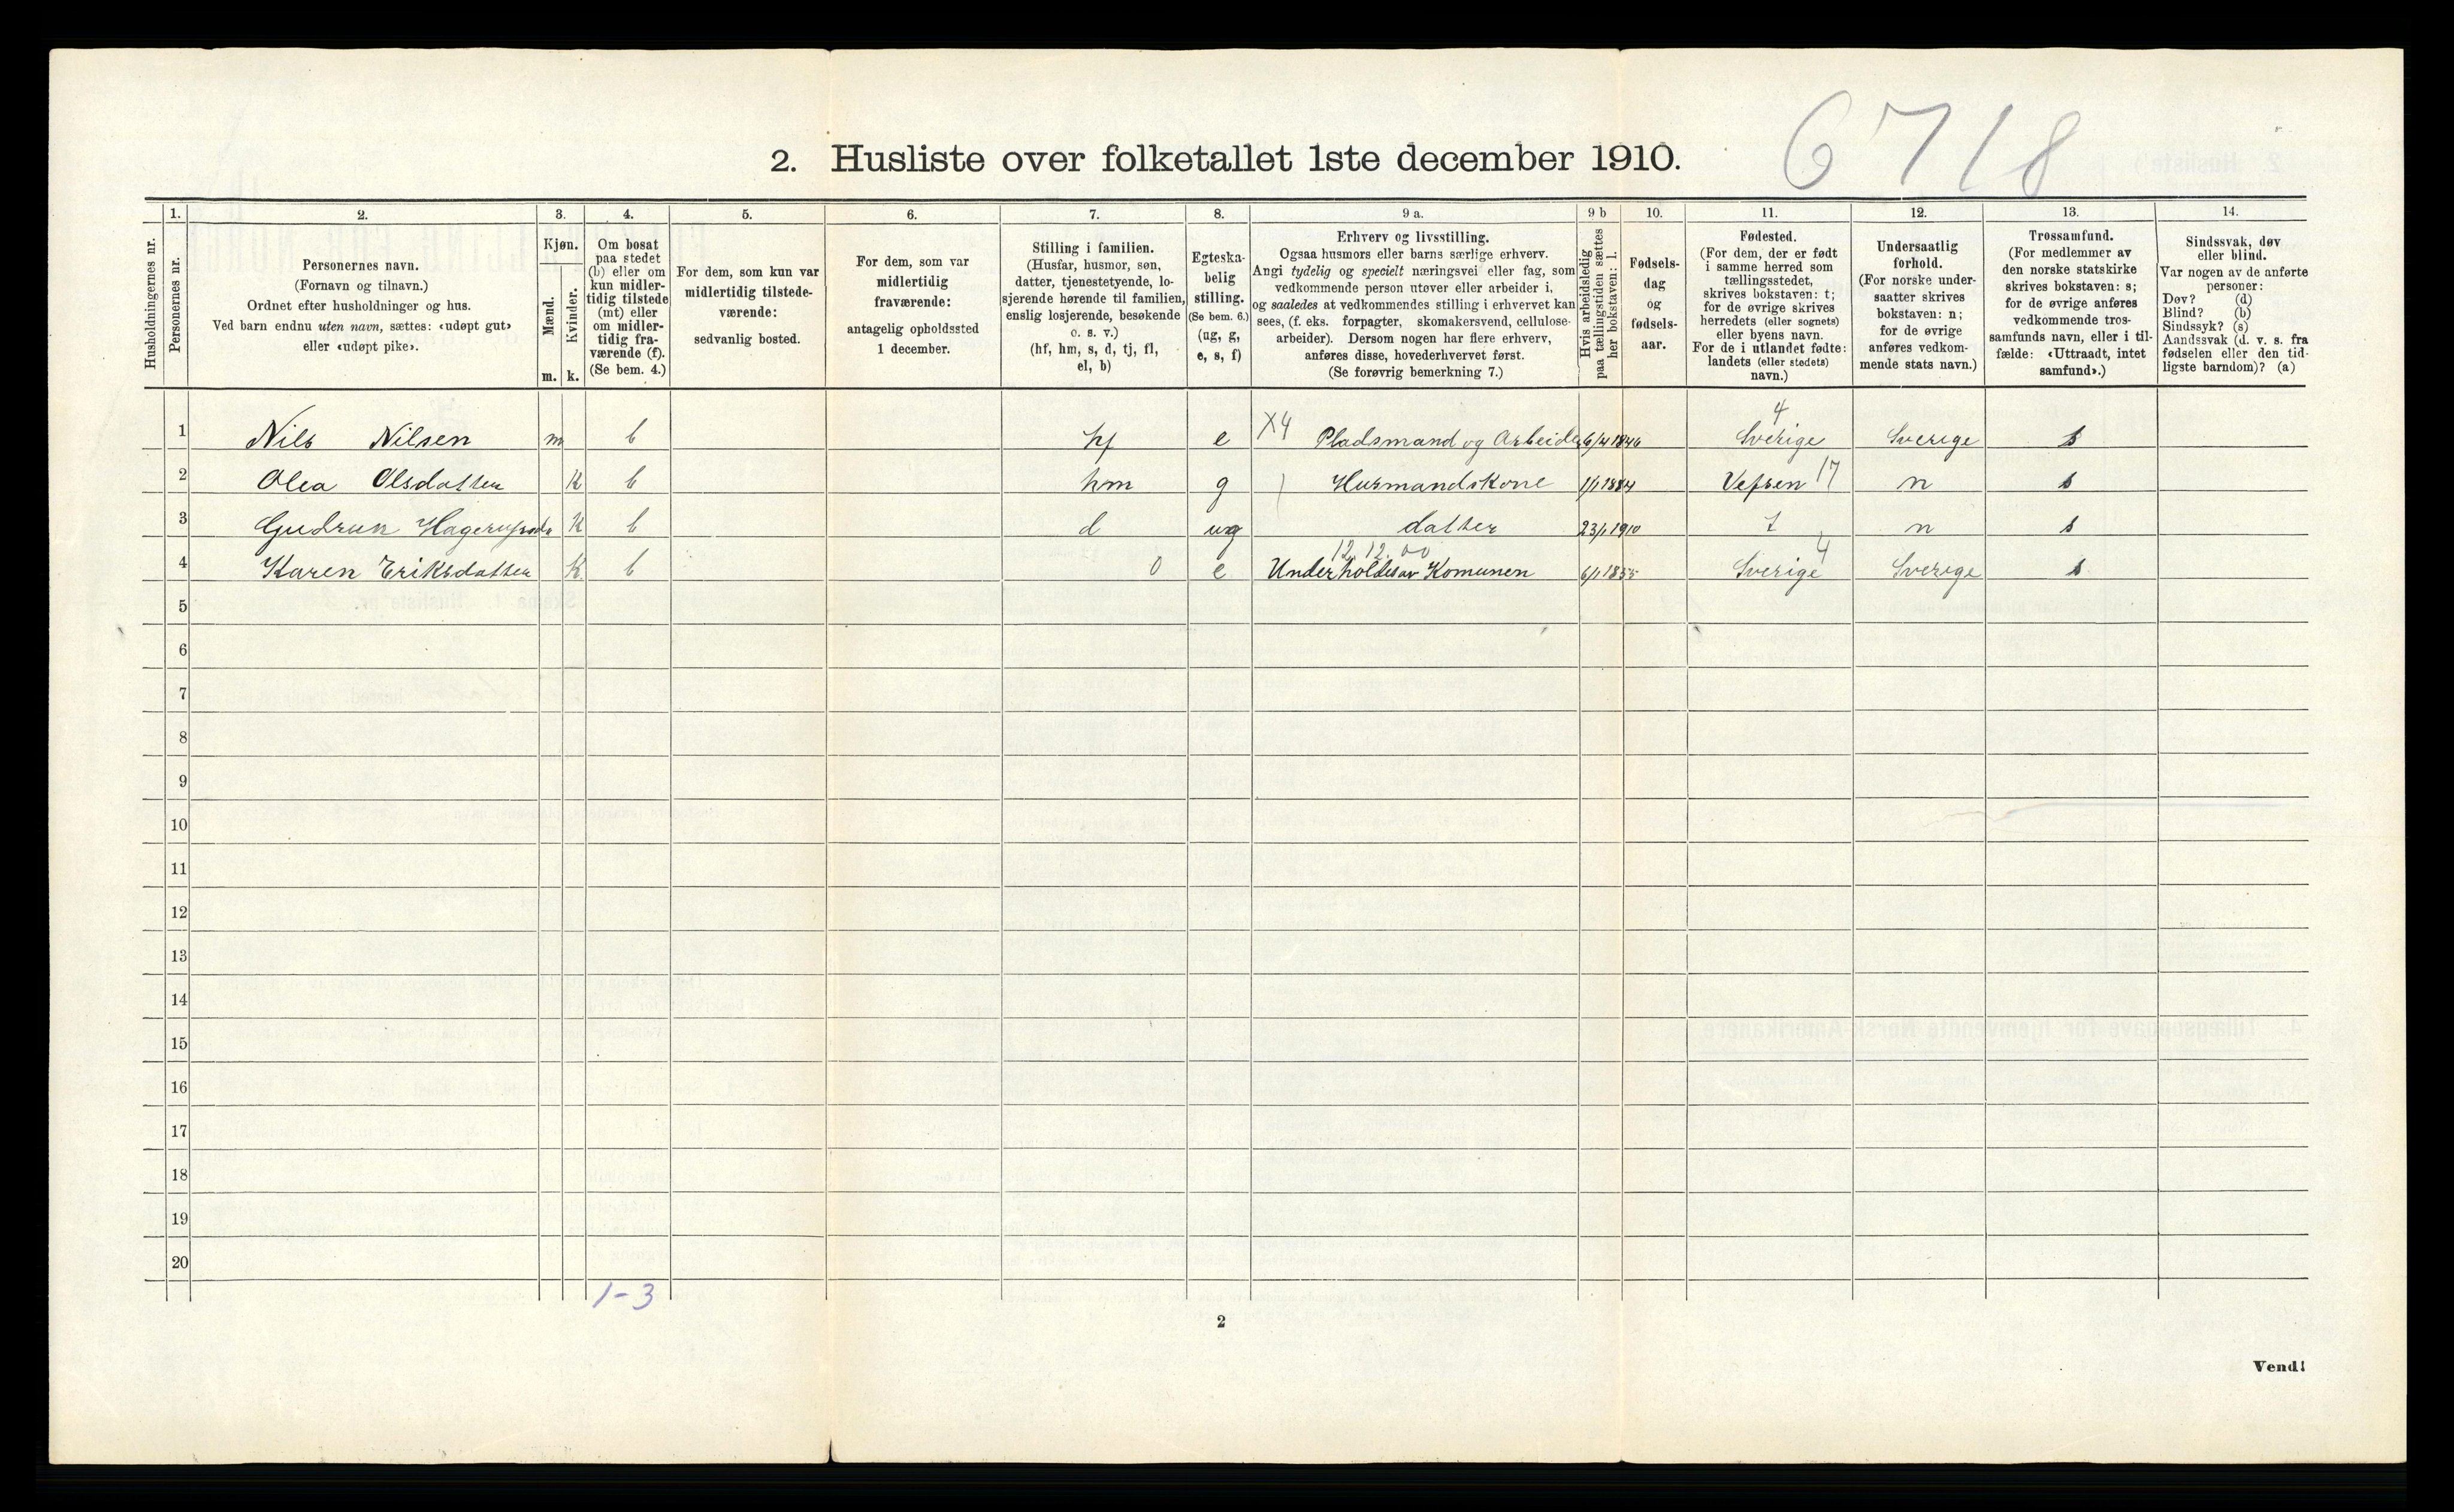 6718
2. Husliste over folketallet 1ste december 1910.
Husholdningernes nr.
1.
Personernes nr.
2.
Personernes navn.
(Fornavn og tilnavn.)
Ordnet efter husholdninger og hus.
Ved barn endnu uten navn, sættes: «udøpt gut»
eller «udøpt pike».
3.
Kjøn.
Mænd.
Kvinder.
m. k.
4.
Om bosat
paa stedet
(b) eller om
kun midler-
tidig tilstede
(mt) eller
om midler-
tidig fra-
værende (f).
(Se bem. 4.)
5.
For dem, som kun var
midlertidig tilstede-
værende:
sedvanlig bosted.
6.
For dem, som var
midlertidig
fraværende:
antagelig opholdssted
1 december.
7.
Stilling i familien.
(Husfar, husmor, søn,
datter, tjenestetyende, lo-
sjerende hørende til familien,
enslig losjerende, besøkende
o. s. v.)
(hf, hm, s, d, tj, fl,
el, b)
8.
Egteska-
belig
stilling.
(Se bem. 6.)
(ug, g,
e, s, f)
9 a.
Erhverv og livsstilling.
Ogsaa husmors eller barns særlige erhverv.
Angi tydelig og specielt næringsvei eller fag, som
vedkommende person utøver eller arbeider i,
og saaledes at vedkommendes stilling i erhvervet kan
sees, (f. eks. forpagter, skomakersvend, cellulose-
arbeider). Dersom nogen har flere erhverv,
anføres disse, hovederhvervet først.
(Se forøvrig bemerkning 7.)
9 b
Hvis arbeidsledig
paa tællingstiden sættes
her bokstaven: l.
10.
Fødsels-
dag
og
fødsels-
aar.
11.
Fødested.
(For dem, der er født
i samme herred som
tællingsstedet,
skrives bokstaven: t;
for de øvrige skrives
herredets (eller sognets)
eller byens navn.
For de i utlandet fødte:
landets (eller stedets)
navn.)
12.
Undersaatlig
forhold.
(For norske under-
saatter skrives
bokstaven: n;
for de øvrige
anføres vedkom-
mende stats navn.)
13.
Trossamfund.
(For medlemmer av
den norske statskirke
skrives bokstaven: s;
for de øvrige anføres
vedkommende tros-
samfunds navn, eller i til-
fælde: «Uttraadt, intet
samfund».)
14.
Sindssvak, døv
eller blind.
Var nogen av de anførte
personer:
Døv? (d)
Blind? (b)
Sindssyk? (s)
Aandssvak (d. v. s. fra
fødselen eller den tid-
ligste barndom)? (a)
1 Nils Nilsen m b hf e X4 Pladsmand og Arbeider 6/4 1846 4 Sverige Sverige s
2 Olea Olsdatter K b hm g Husmandskone 1/1 1884 Vefsen 17 n s
3 Gudrun K b d ug datter 23/1 1910 t n s
12.12.00
4 Karen Eriksdatter K b 0 e Underholdes av Komunen 6/1 1855 Sverige 4 Sverige s
5
6
7
8
9
10
11
12
13
14
15
16
17
18
19
20
1-3
2
Vend!